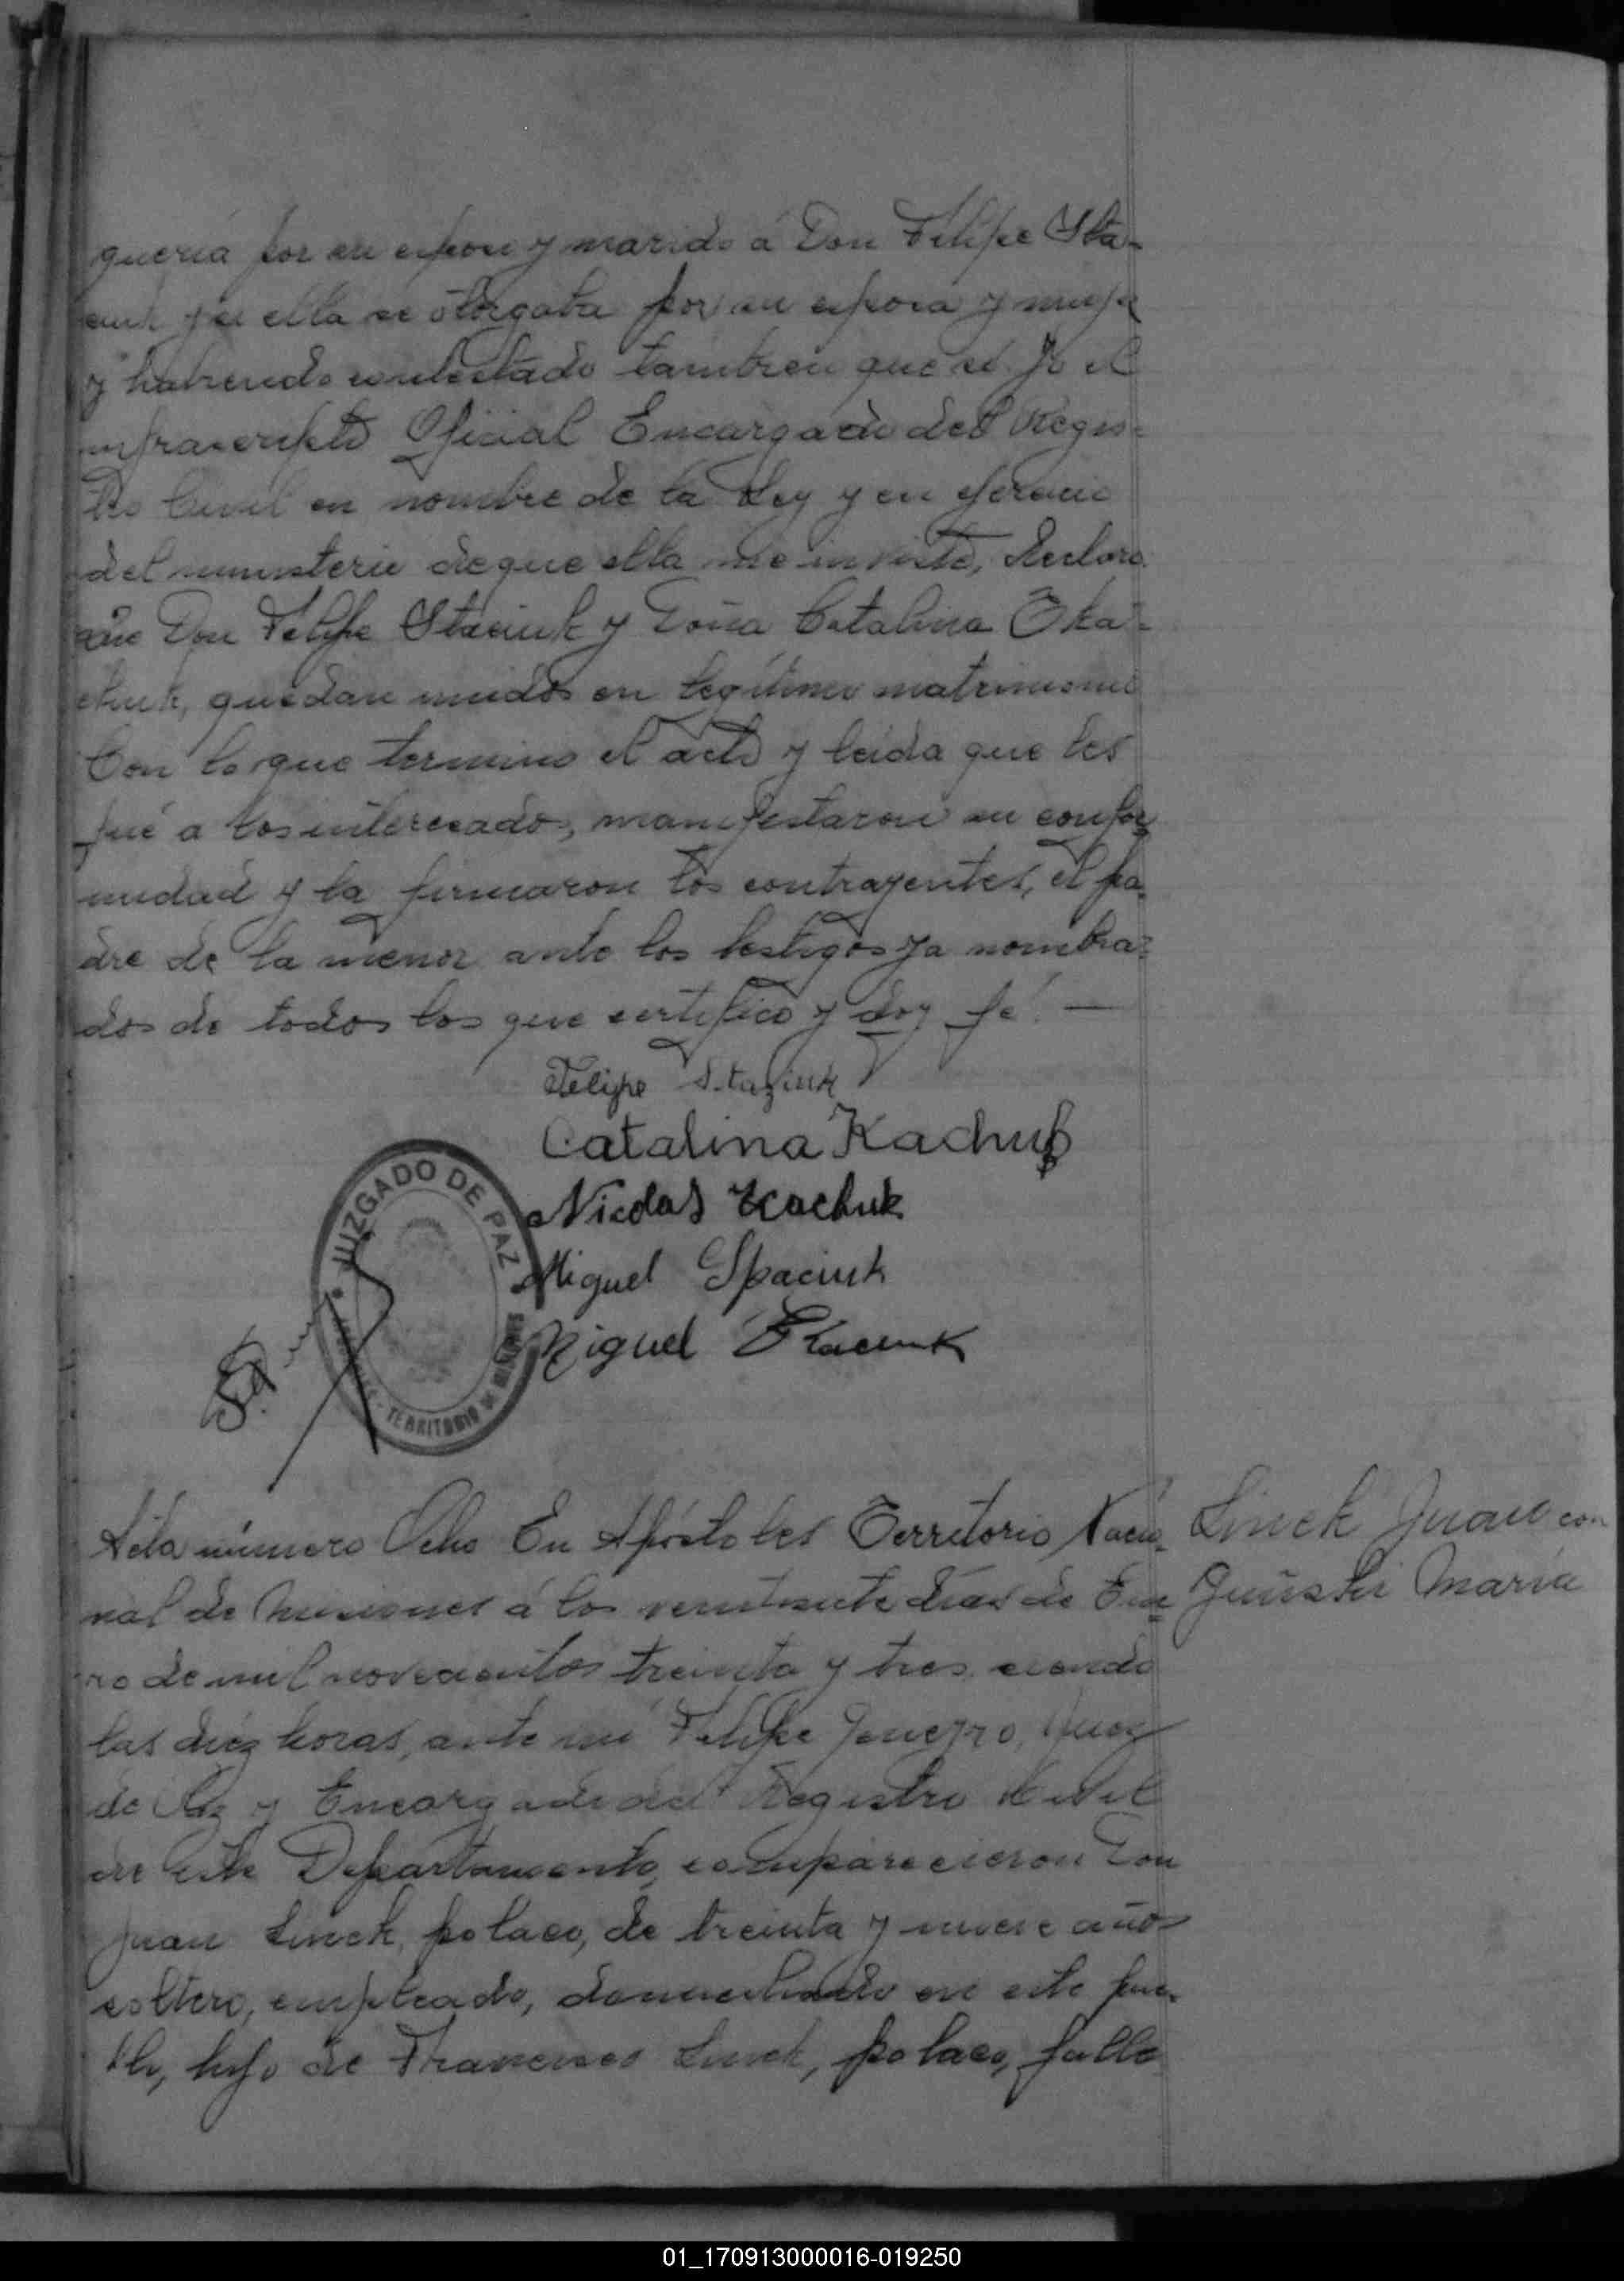 quería por su esposo y marido á Don Felipe Sta-
ciuk y si ella se otorgaba por su esposa y mujer
y habiendo contestado tambien que si. Yo el
infrascripto Oficial Encargado del Regis-
tro Civil en nombre de la Ley y en ejercicio
del ministerio de que ella me inviste, declaro
que Don Felipe Staciuk y Doña Catalina Tka-
chuk, quedan unidos en legítimo matrimonio
Con lo que termino el acto y leida que les
fué a los interesados, manifestaron su confor
midad y la firmaron los contrayentes, el pa-
dre de la menor ante los testigos ya nombra-
dos de todos los que certifico y doy fé. —
Felipe Staziuk
Catalina Kachuk
Nicolas Kachuk
Miguel Spaciuk
Miguel
JUZGADO DE PAZ
TERRITORIO DE MISIONES
Acta número Ocho En Apóstoles Territorio Nacio-
nal de Misiones á los veintisiete dias de Ene
ro de mil novecientos treinta y tres siendo
las diez horas, ante mi Felipe Juez
de Paz y Encargado del Registro Civil
de este Departamento, comparecieron Don
Juan Linek, polaco, de treinta y nueve años
soltero, empleado, domiciliado en este pue-
blo, hijo de Francisco Linek, polaco, falle
Linek Juan con
María
01_170913000016-019250